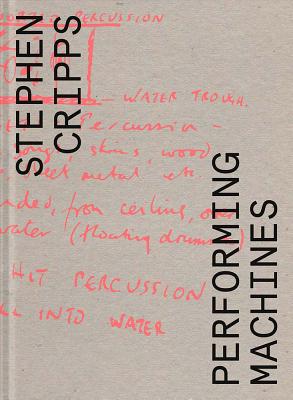 STEPHEN
CRIPPS
PERFORMING
MACHINES
PERCUSSION
— WATER TROUGH.
Percussion —
song, skins, wood
sheet metal etc.
nded, from ceiling, over
water (floating drums)
HIT PERCUSSION
LL INTO WATER